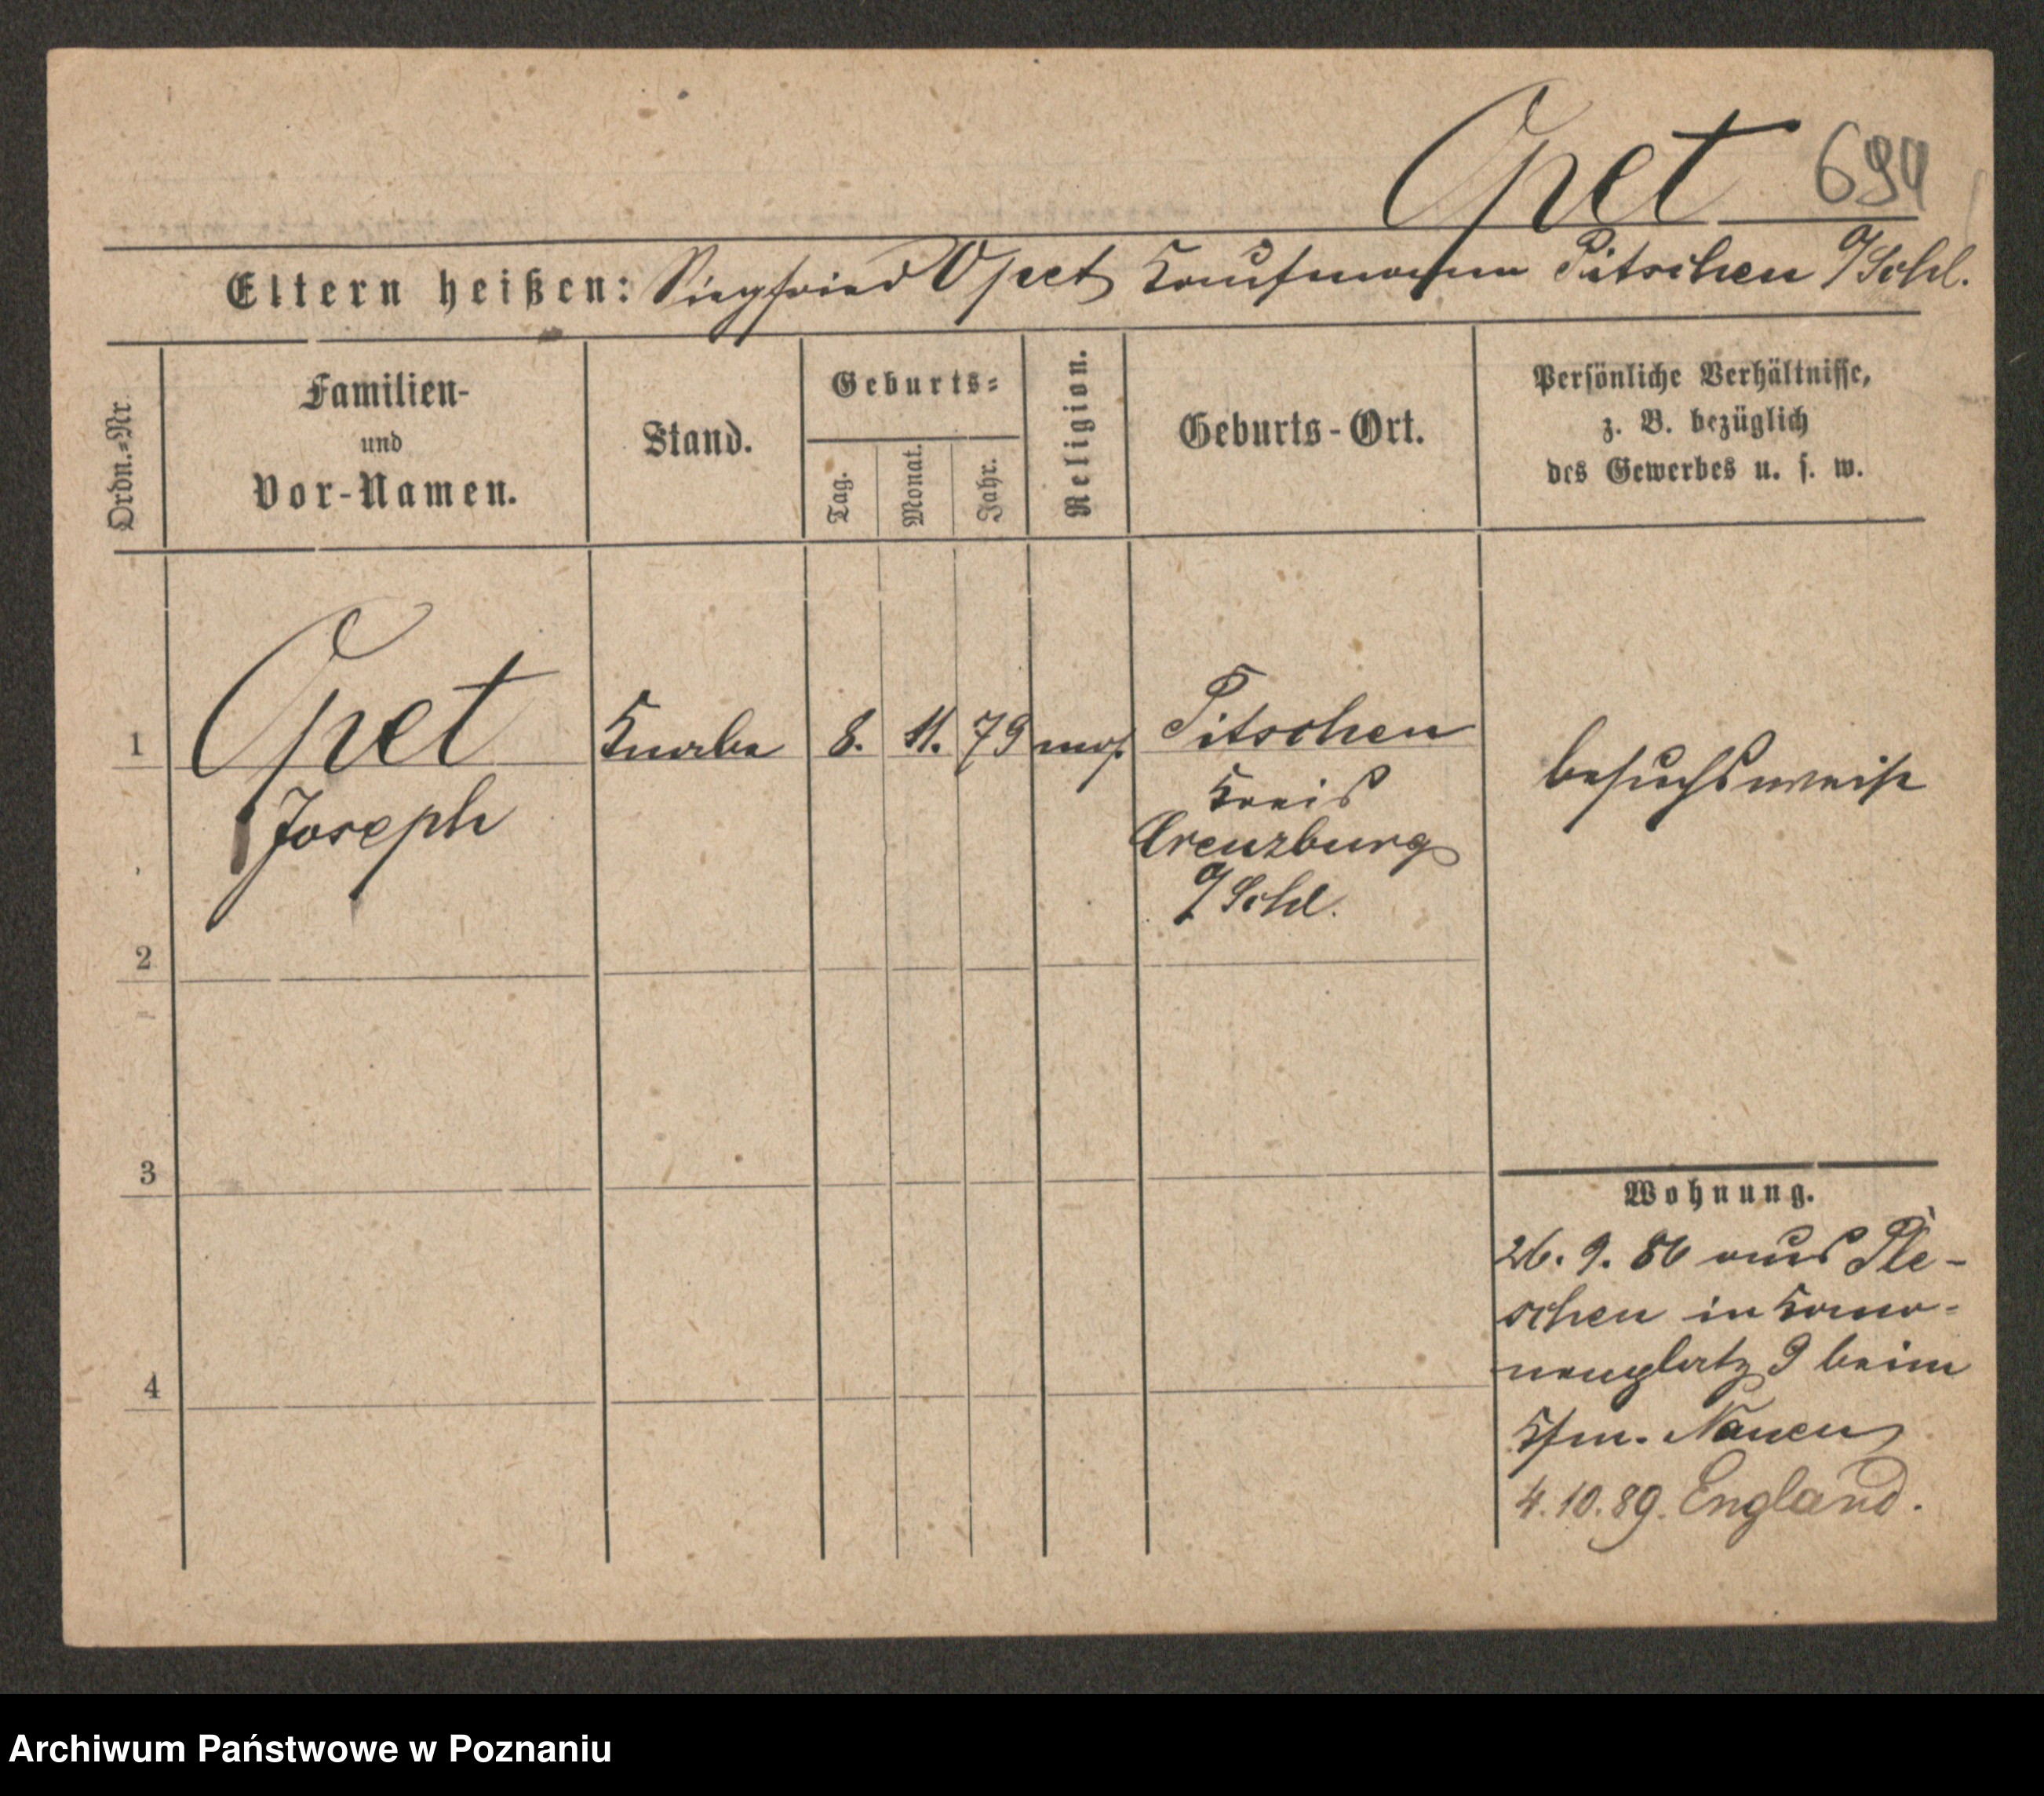 Opet 694
Eltern heißen: Siegfried Opet Kaufmann Pitschen O/Schl.
Ordn.=Nr.
Familien-
und
Vor-Namen.
Stand.
Geburts=
Tag.
Monat.
Jahr.
Religion.
Geburts-Ort.
Persönliche Verhältnisse,
z. B. bezüglich
des Gewerbes u. s. w.
1 Opet Knabe 8. 11. 79 mos. Pitschen
Joseph
Kreis
Creuzburg
O/Schl.
besuchsweise
2
3
4
Wohnung.
26. 9. 86 aus Ple-
schen in Kano-
nenplatz 9 beim
Kfm. Nauen
4.10.89. England.
Archiwum Państwowe w Poznaniu